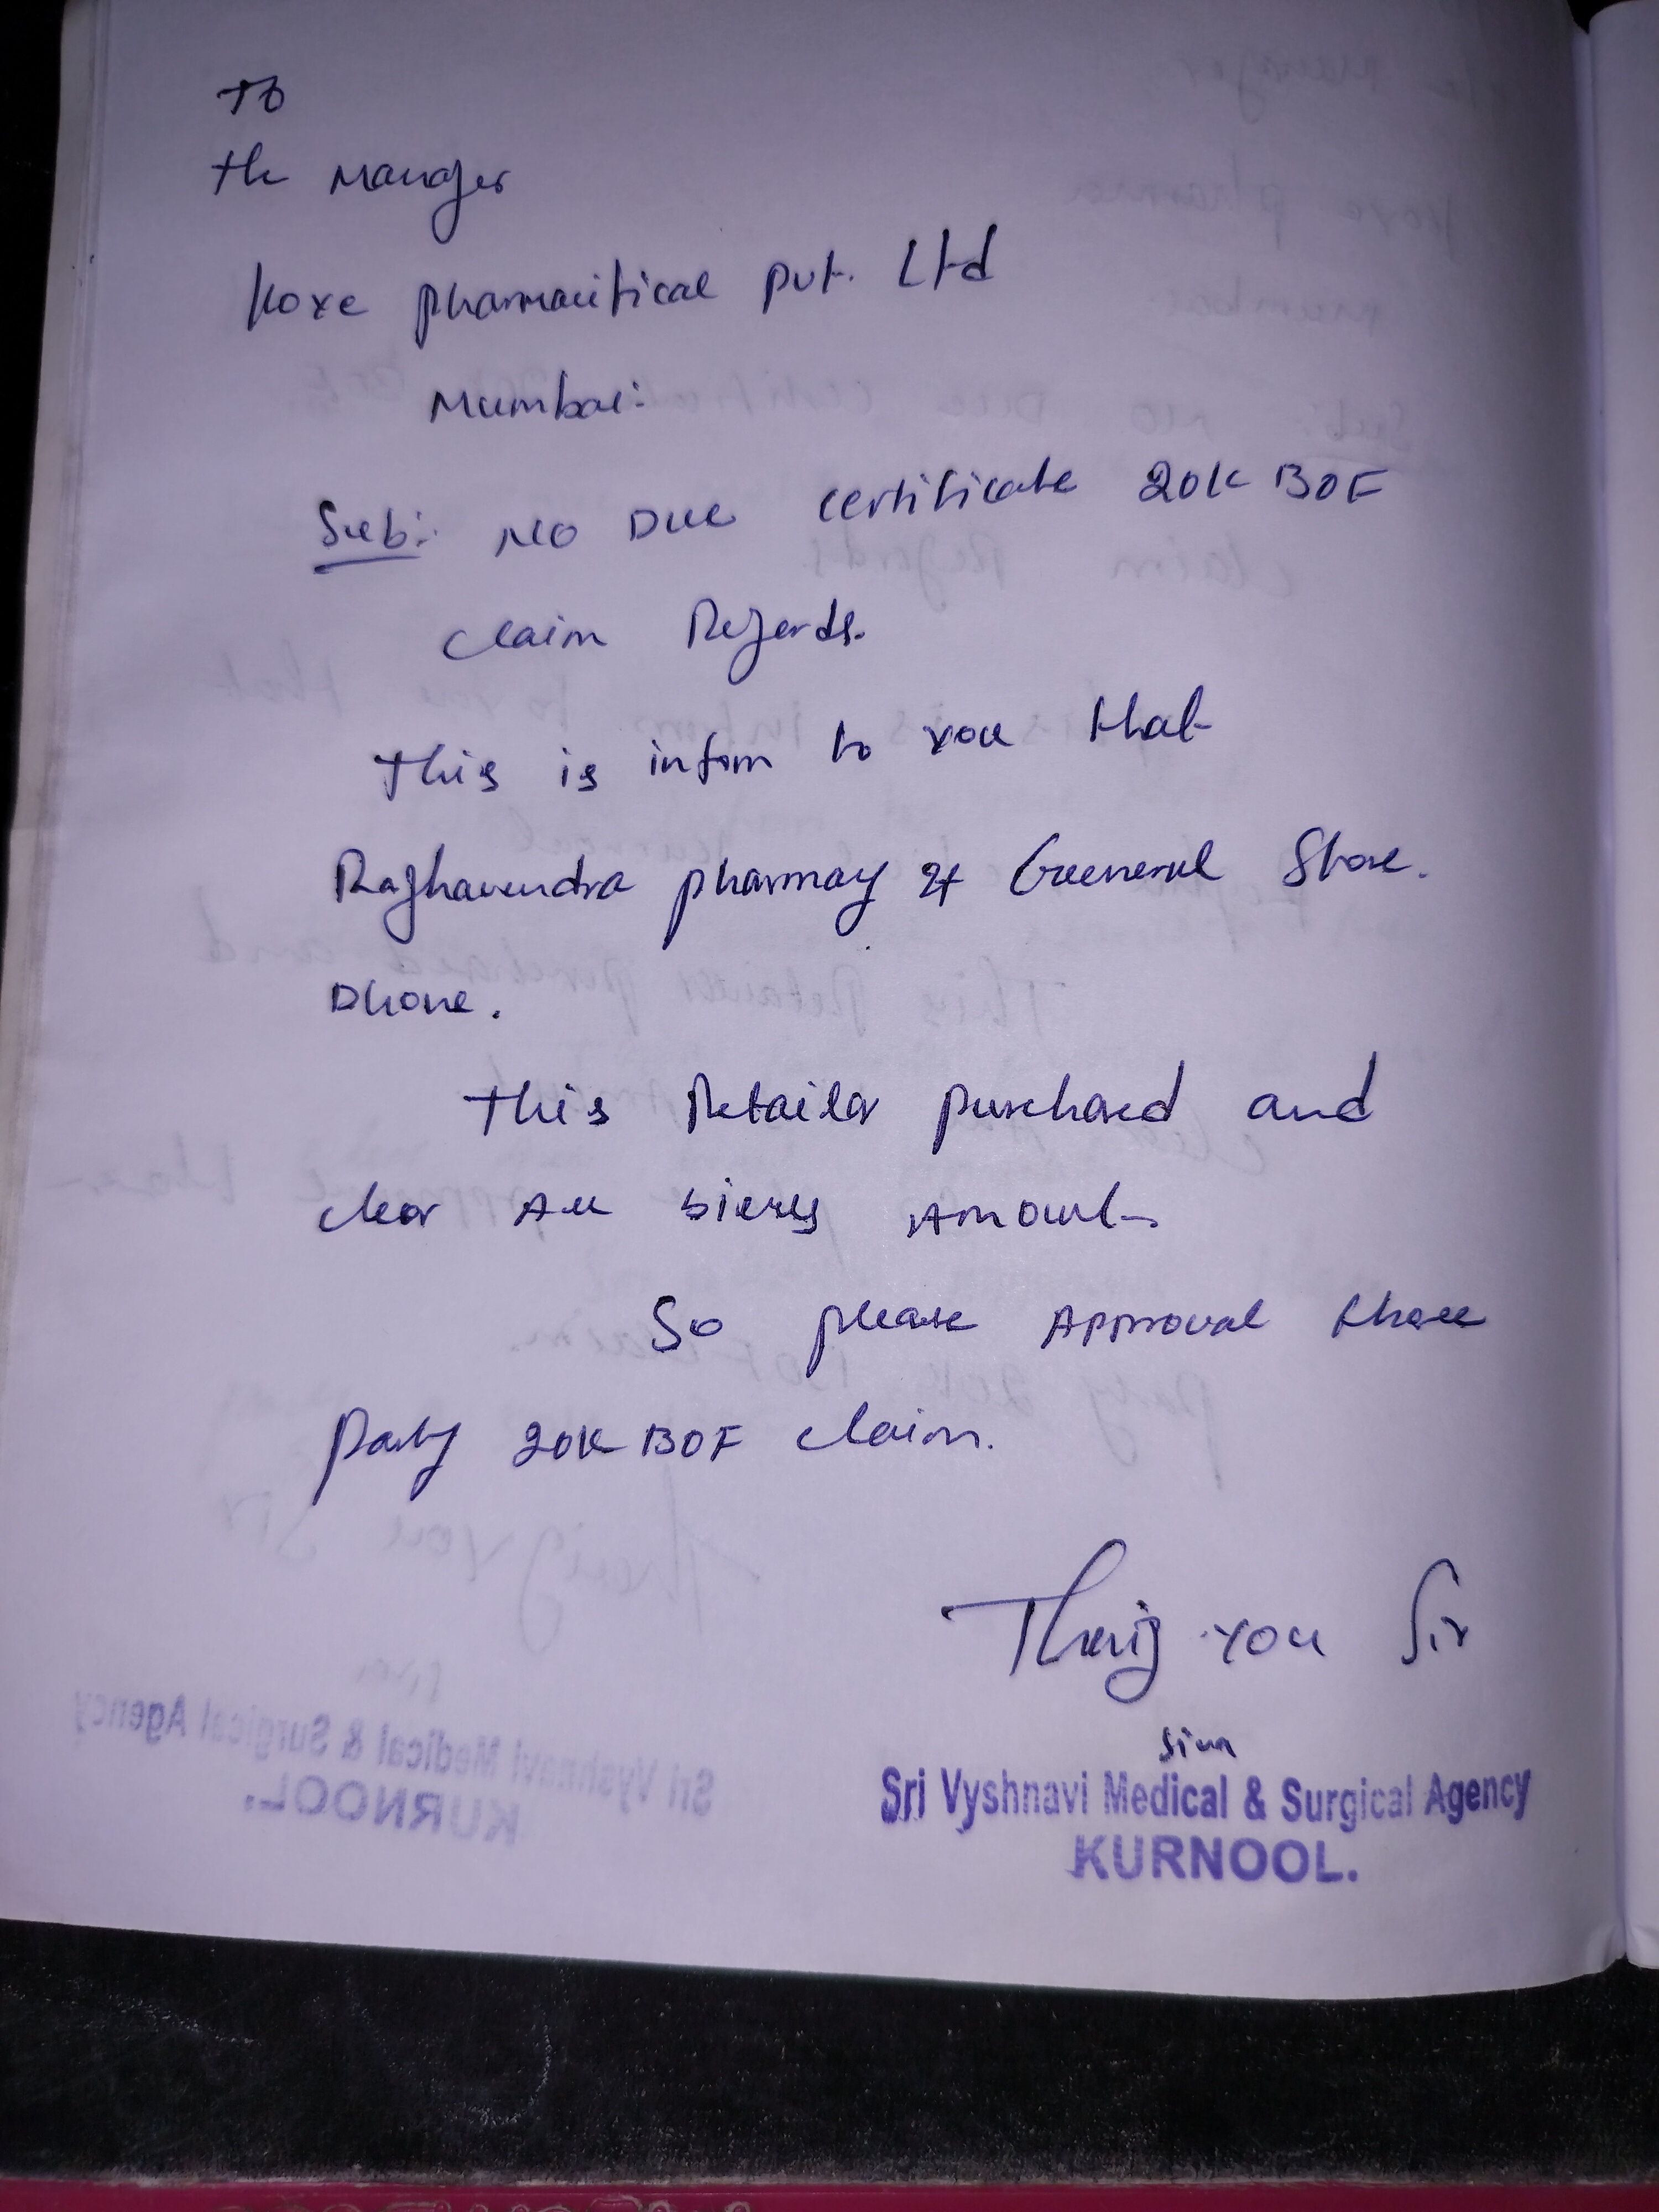 To
The Manager
Koxe pharmacitical pvt. Ltd
Mumbai:
Sub:- NO Due certificate 20K BOF
claim Regards.
This is infom to you that
Raghavendra pharmay & Gueneral Store.
Dhone.
This Retailer purchased and
clear All Amount
So please Approval these
party 20K BOF claim.
you Sir
Siva
Sri Vyshnavi Medical & Surgical Agency
KURNOOL.